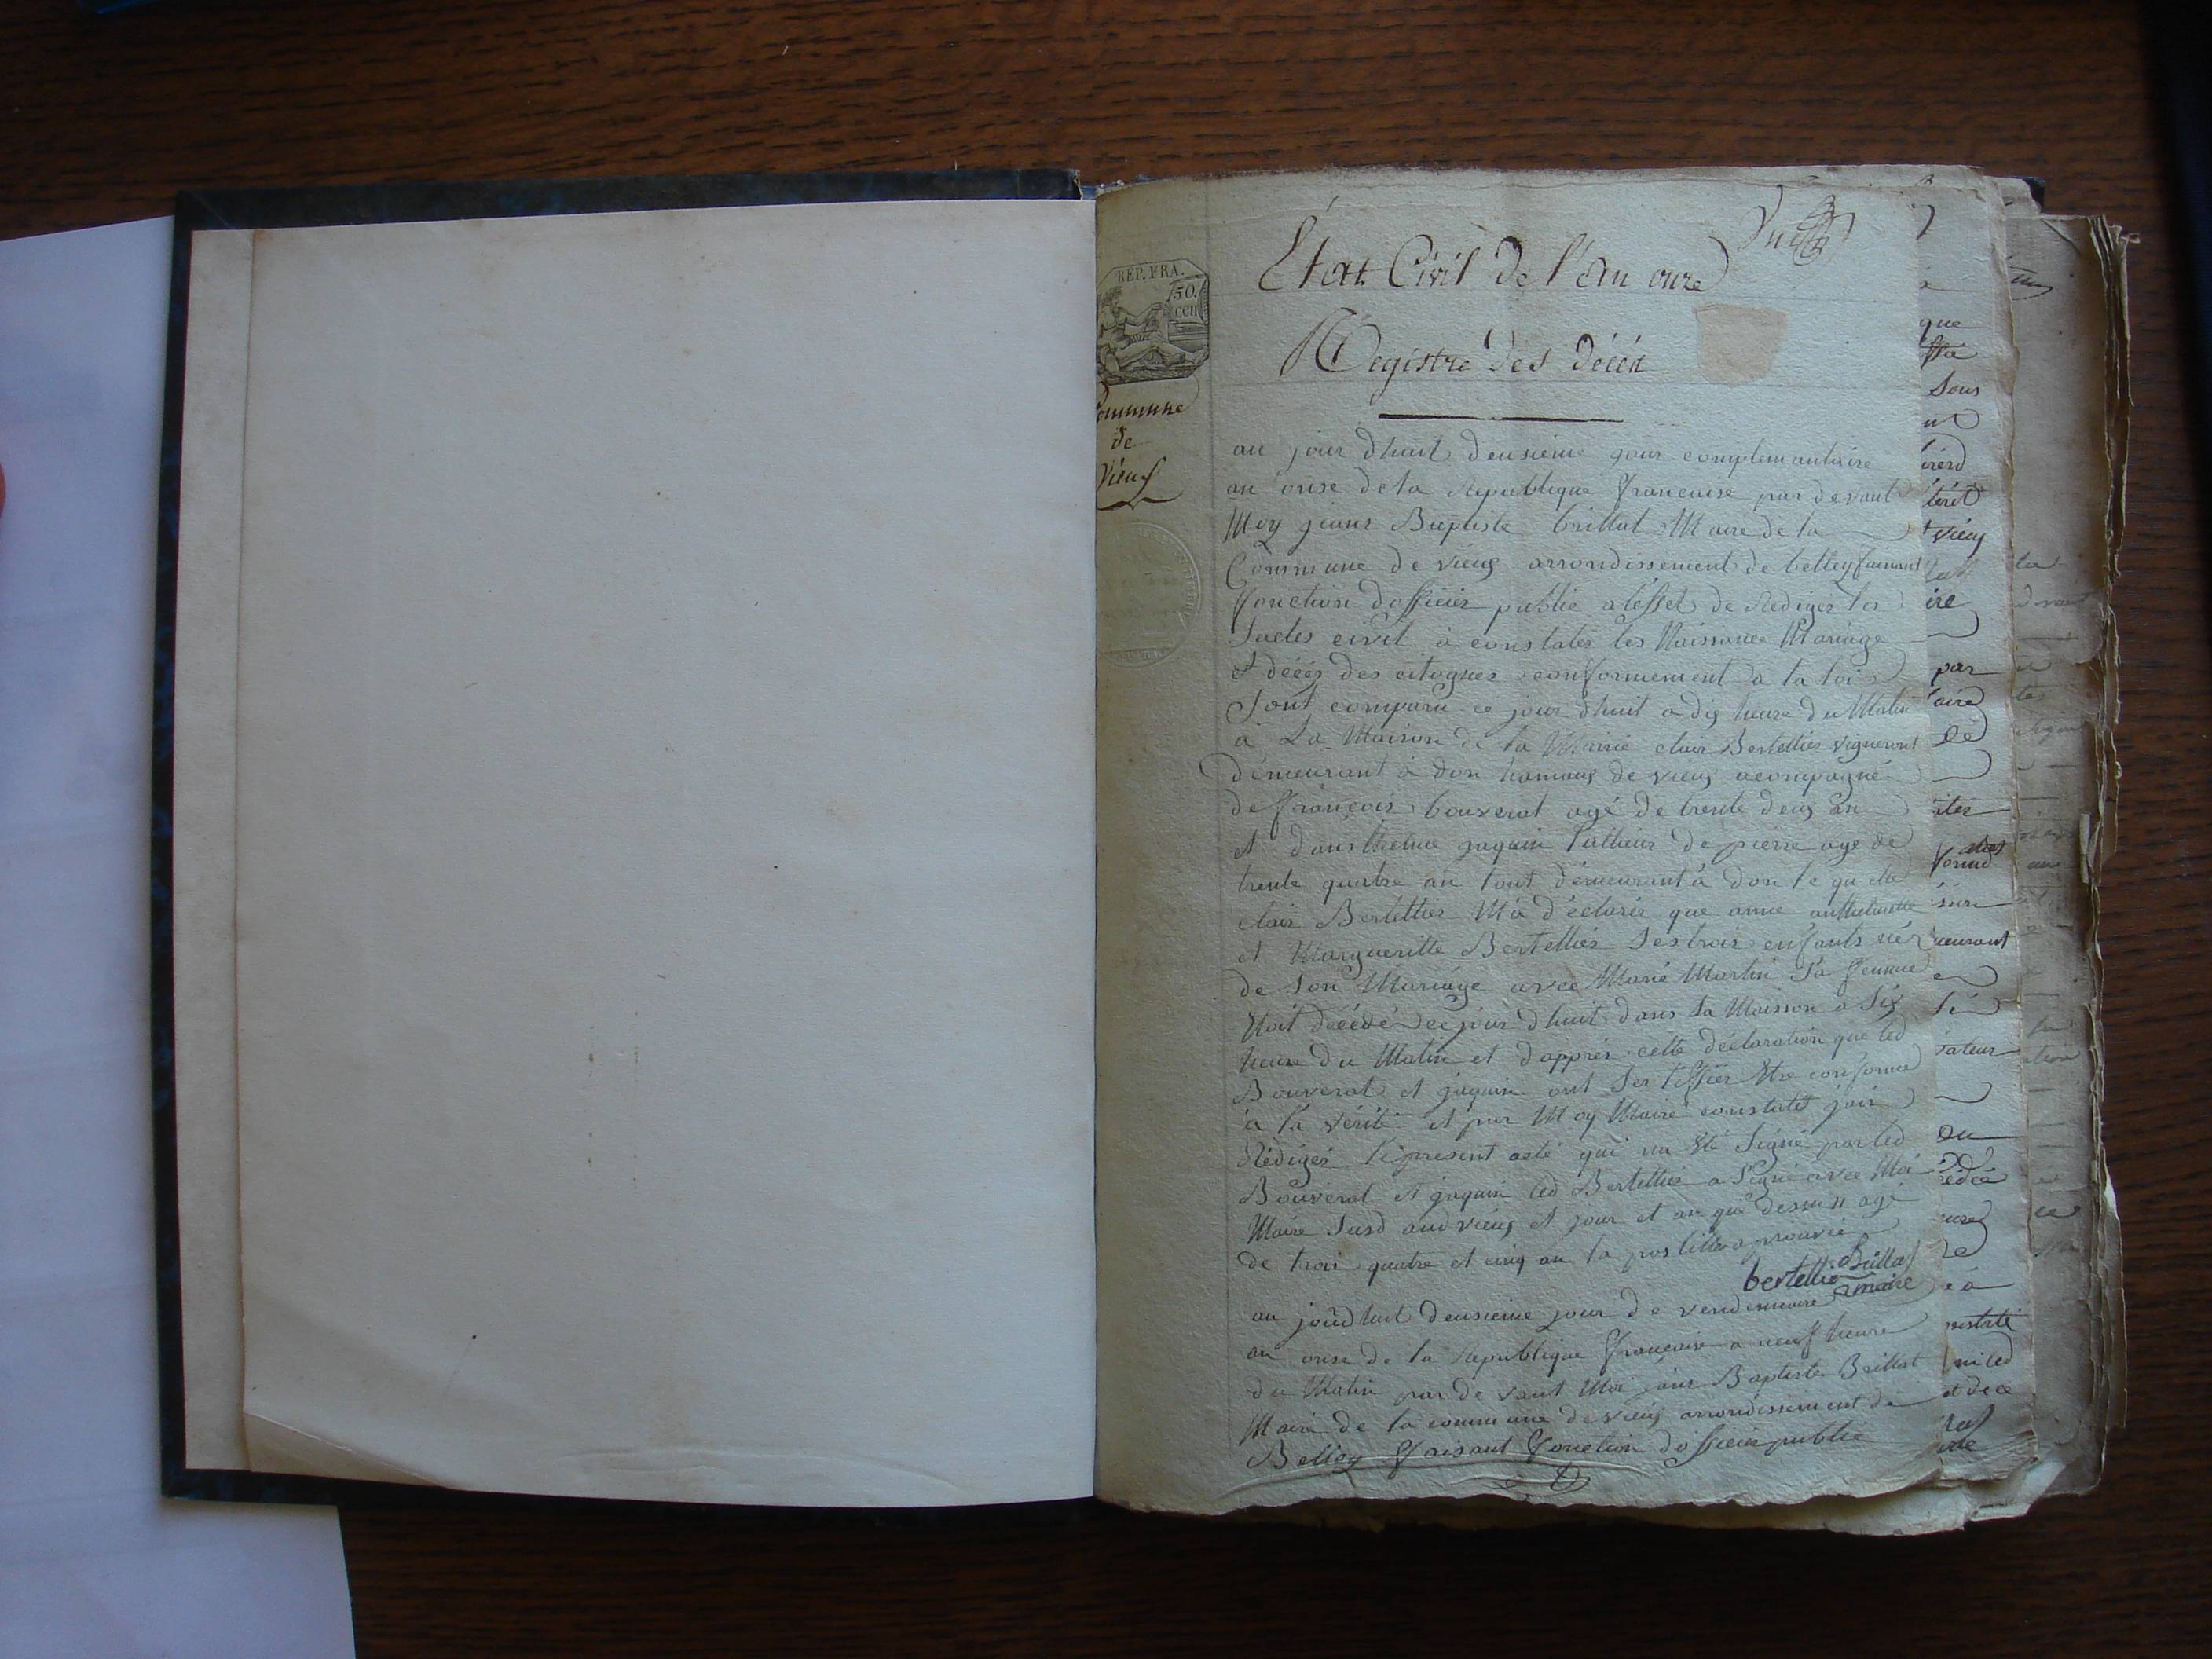 REP. FRA.
50.
cen
Commune
de
Vieuf
État Civil de l'an onze
Registre des décéd
au jour dhuit deusieme jour complemantaire
an onse de la Republique francaise par devant
Moy jeans Baptiste brillat Maire de la
Commune de vieug arrondissement de belley faisant
fonction dofficier publie a leffet de Rediger les
Sactes civil à constater les Naissance Mariage
et décés des citoynes conformement a la loi
Sont comparu ce jour dhuit a dix heure du Matin
à La Maison de la Mairie clair Bertellier vigneront
démeurant à don hamaug de vieug acompagné
de François bouverat agé de trente deug an
et jaquin tallieur de pierre age de
trente quatre an tout démeurant a don le qu
clair Bertellier M'a déclarés que anne anthelmette
et Margueritte Bertelliér Ses trois enfants né
de Son Mariage avec Marie Martin Sa femme
décédé ce jour dhuit dans Sa Maisson a Six
heure du Matin et dapprés cette déclaration que led
Bouverat et jaquin ont Sertiffier Etre conforme
à la vérité et par Moy Maire constaté jais
Rédigés le present acte qui na été Signé par led
Bouverat et jaquin led Bertellier a Signé avec Moi
Maire Susd aud vieug et jour et an que dessu agé
de trois quatre et cinq an la postille aprouvée
bertellie Brillat
maire
au jourdhuit deusieme jour de vendemiaire
an onse de la Republique francaise a neuf heure
du Matin par de vant Moi jans Baptiste Brillat
Maire de la commune de vieug arrondissement de
Belley faisant fonction dofficier publié
que
Sous
par
aire
de
meurant
au
et de ce